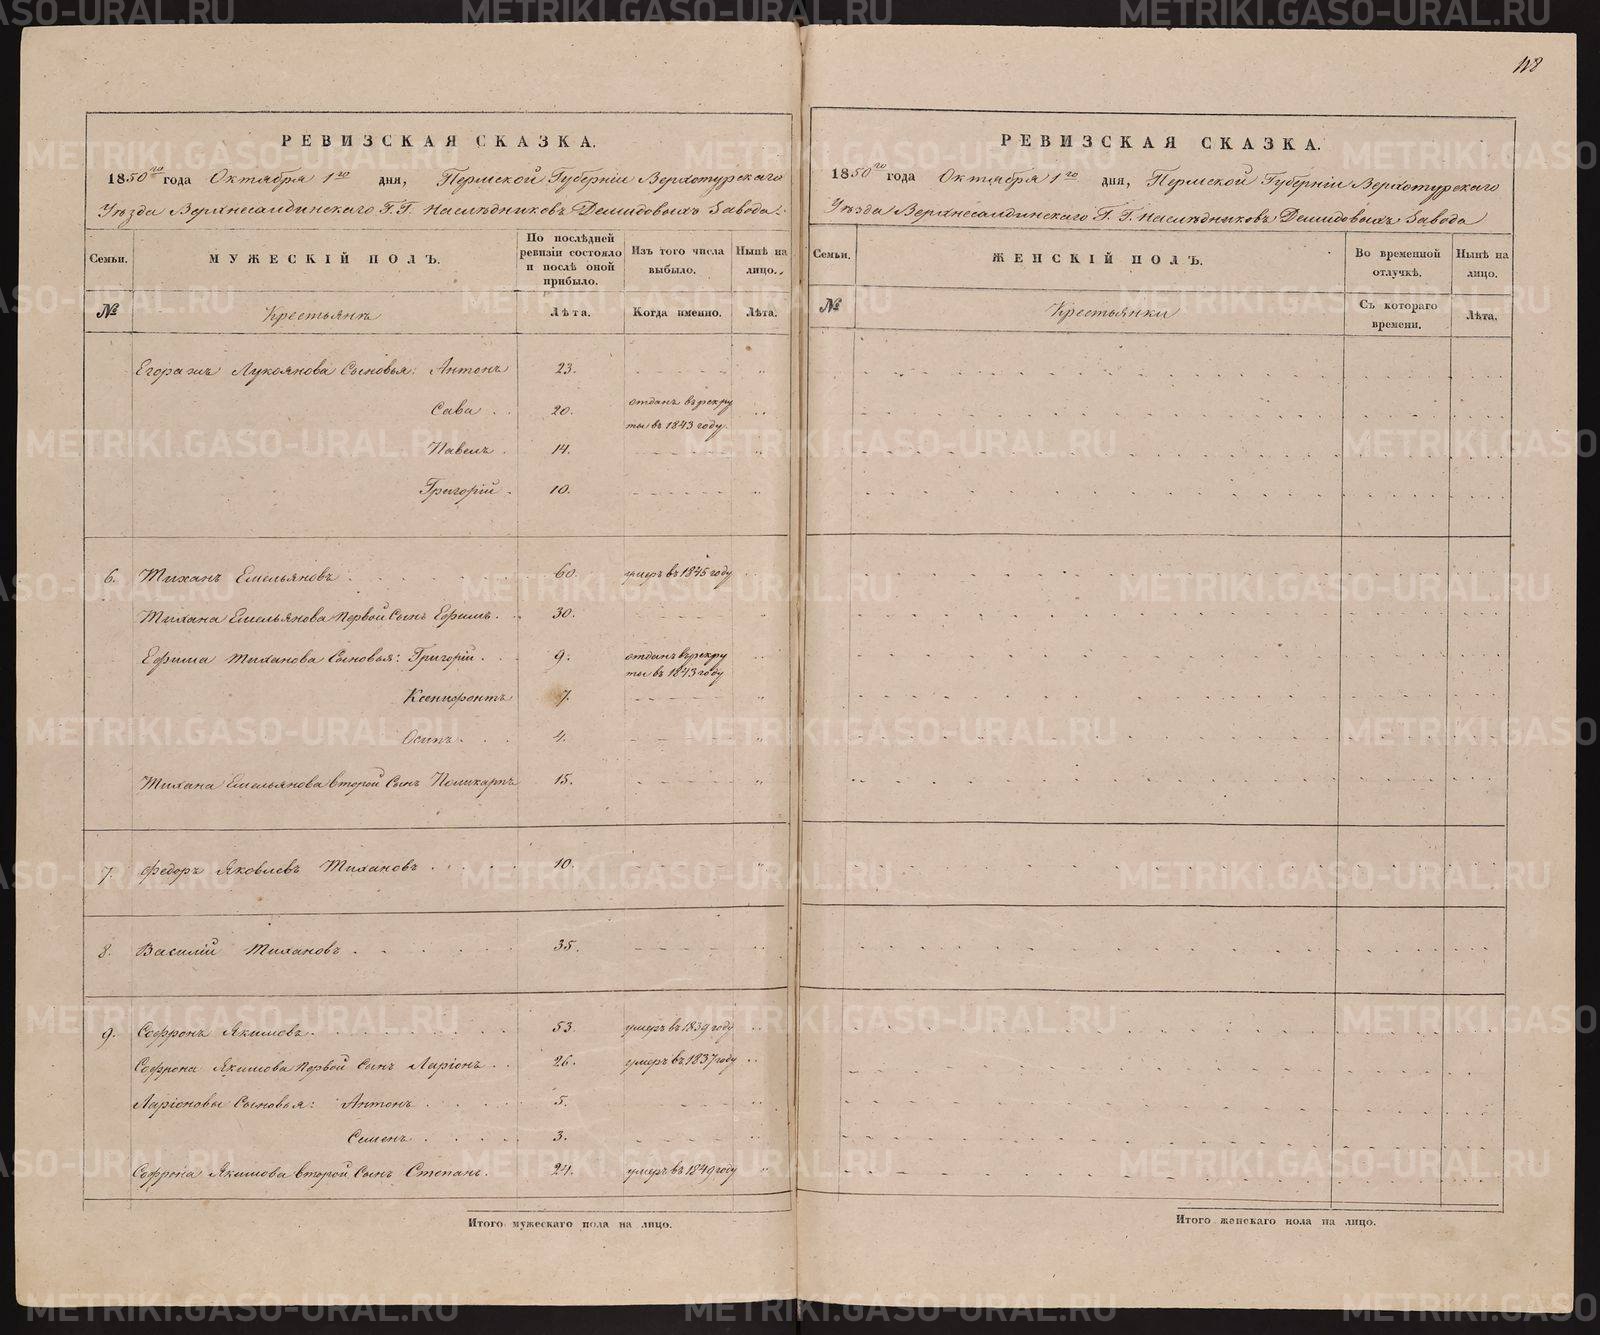 118
РЕВИЗСКАЯ СКАЗКА.
1850го года Октября 1го дня, Пермской Губерніи Верхотурскаго
Уѣзда Верхнесалдинскаго Г.Г. Наслѣдниковъ Демидовыхъ Завода.
Семьи.
МУЖЕСКІЙ ПОЛЪ.
По послѣдней ревизіи состояло и послѣ оной прибыло.
Изъ того числа выбыло.
Нынѣ на лицо.
№
Крестьянъ
Лѣта.
Когда именно.
Лѣта.
Егора жъ Лукоянова Сыновья: Антонъ 23.
Сава 20. отданъ въ рекру
ты въ 1843 году.
Павелъ 14.
Григорій 10.
6. Тиханъ Емельяновъ 60. умеръ въ 1845 году
Тихана Емельянова Первой Сынъ Ефимъ 30.
Ефима Тиханова Сыновья: Григорій 9. отданъ въ рекру
ты въ 1843 году
Ксенифонтъ 7.
Осипъ 4.
Тихана Емельянова второй Сынъ Поликарпъ 15.
7. Федоръ Яковлевъ Тихановъ 10.
8. Василій Тихановъ 35.
9. Софронъ Якимовъ 53 умеръ въ 1839 году
Софрона Якимова Первой Сынъ Ларіонъ 26. умеръ въ 1837 году
Ларіоновы Сыновья: Антонъ 5.
Семенъ 3.
Софрона Якимова второй Сынъ Степанъ 24. умеръ въ 1849 году
Итого мужескаго пола на лицо.
РЕВИЗСКАЯ СКАЗКА.
1850го года Октября 1го дня, Пермской Губерніи Верхотурскаго
Уѣзда Верхнесалдинскаго Г.Г. Наслѣдниковъ Демидовыхъ Завода
Семьи.
ЖЕНСКІЙ ПОЛЪ.
Во временной отлучкѣ.
Нынѣ на лицо.
№
Крестьянки
Съ котораго времени.
Лѣта.
Итого женскаго пола на лицо.
METRIKI.GASO-URAL.RU